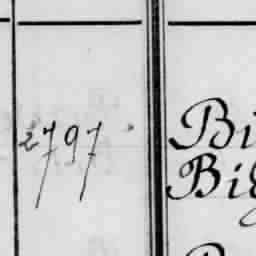 2797
Bi
Big